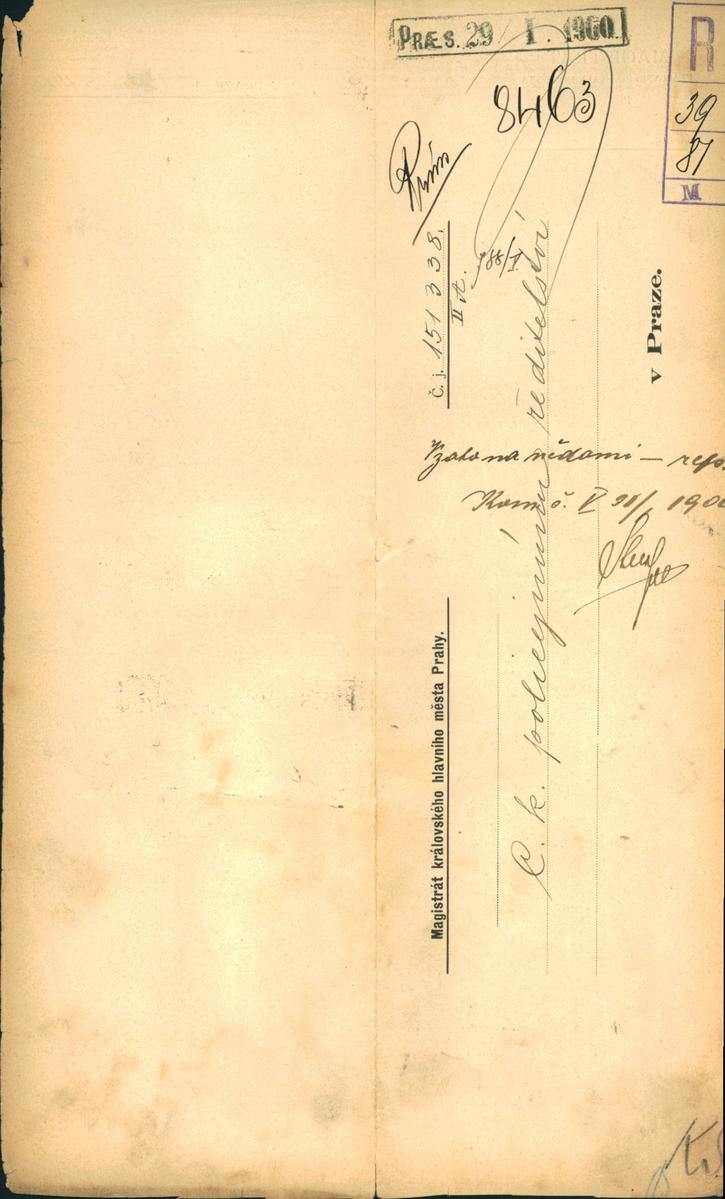 PRÆS. 29 I. 1900.
8463
R
39
87
M
Č. j. 151338.
II A.
188/I
Magistrát královského hlavního města Prahy.
C. k. policejnímu ředitelství
v Praze.
Vzato na vědomí —
Kom. č. V